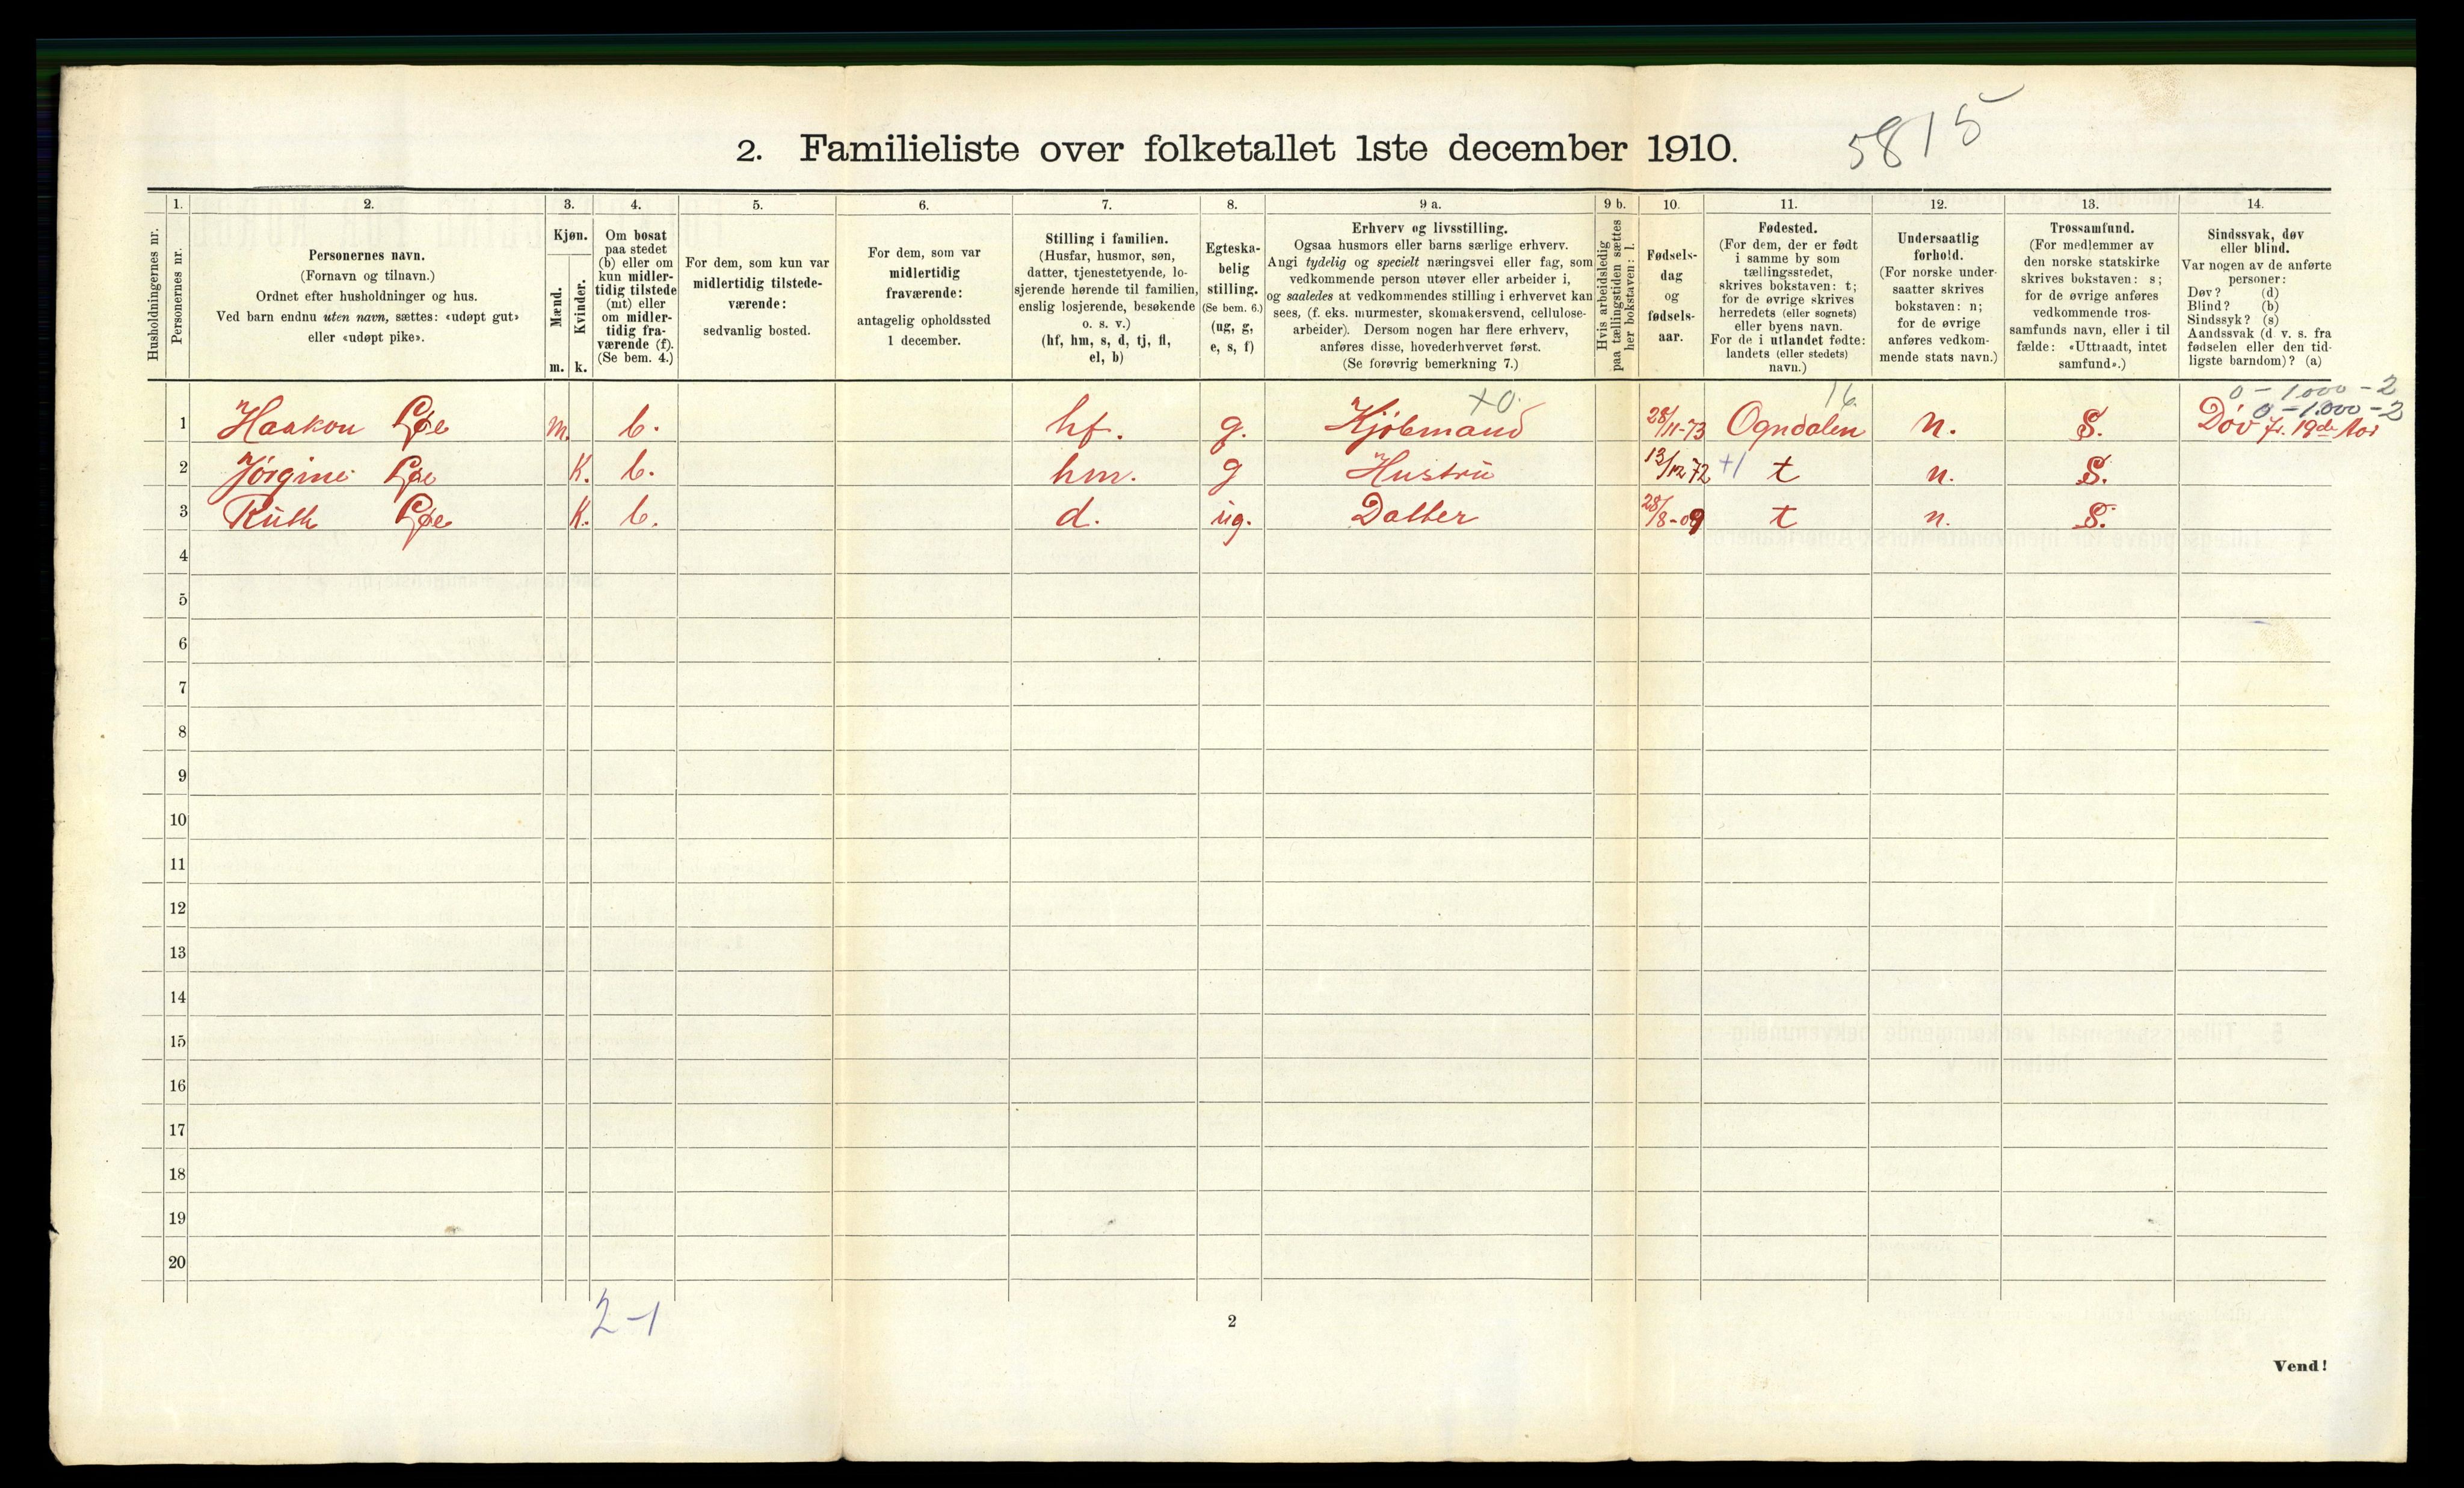 2. Familieliste over folketallet 1ste december 1910.
5815
Husholdningernes nr.
1.
Personernes nr.
2.
Personernes navn.
(Fornavn og tilnavn.)
Ordnet efter husholdninger og hus.
Ved barn endnu uten navn, sættes: «udøpt gut»
eller «udøpt pike».
3.
Kjøn.
Mænd.
Kvinder.
m. k.
4.
Om bosat
paa stedet
(b) eller om
kun midler-
tidig tilstede
(mt) eller
om midler-
tidig fra-
værende (f).
(Se bem. 4.)
5.
For dem, som kun var
midlertidig tilstede-
værende:
sedvanlig bosted.
6.
For dem, som var
midlertidig
fraværende:
antagelig opholdssted
1 december.
7.
Stilling i familien.
(Husfar, husmor, søn,
datter, tjenestetyende, lo-
sjerende hørende til familien,
enslig losjerende, besøkende
o. s. v.)
(hf, hm, s, d, tj, fl,
el, b)
8.
Egteska-
belig
stilling.
(Se bem. 6.)
(ug, g,
e, s, f)
9 a.
Erhverv og livsstilling.
Ogsaa husmors eller barns særlige erhverv.
Angi tydelig og specielt næringsvei eller fag, som
vedkommende person utøver eller arbeider i,
og saaledes at vedkommendes stilling i erhvervet kan
sees, (f. eks. murmester, skomakersvend, cellulose-
arbeider). Dersom nogen har flere erhverv,
anføres disse, hovederhvervet først.
(Se forøvrig bemerkning 7.)
9 b.
Hvis arbeidsledig
paa tællingstiden sættes
her bokstaven: l.
10.
Fødsels-
dag
og
fødsels-
aar.
11.
Fødested.
(For dem, der er født
i samme by som
tællingsstedet,
skrives bokstaven: t;
for de øvrige skrives
herredets (eller sognets)
eller byens navn.
For de i utlandet fødte:
landets (eller stedets)
navn.)
12.
Undersaatlig
forhold.
(For norske under-
saatter skrives
bokstaven: n;
for de øvrige
anføres vedkom-
mende stats navn.)
13.
Trossamfund.
(For medlemmer av
den norske statskirke
skrives bokstaven: s;
for de øvrige anføres
vedkommende tros-
samfunds navn, eller i til
fælde: «Uttraadt, intet
samfund».)
14.
Sindssvak, døv
eller blind.
Var nogen av de anførte
personer:
Døv? (d)
Blind? (b)
Sindssyk? (s)
Aandssvak (d. v. s. fra
fødselen eller den tid-
ligste barndom)? (a)
+0. 16 0 – 1.000 – 2
0 – 1.000 – 2
1 Haakon Gøe m. b. hf. g. Kjøbmand 28/11-73 Ogndalen n. S. Døv fr. 19de
2 Jørgine Gøe K. b. hm. g Hustru 13/12 72 +1 t n. S.
3 Ruth Gøe K. b. d. ug. Datter 28/8-09 t n. S.
4
5
6
7
8
9
10
11
12
13
14
15
16
17
18
19
20
2-1
2
Vend!